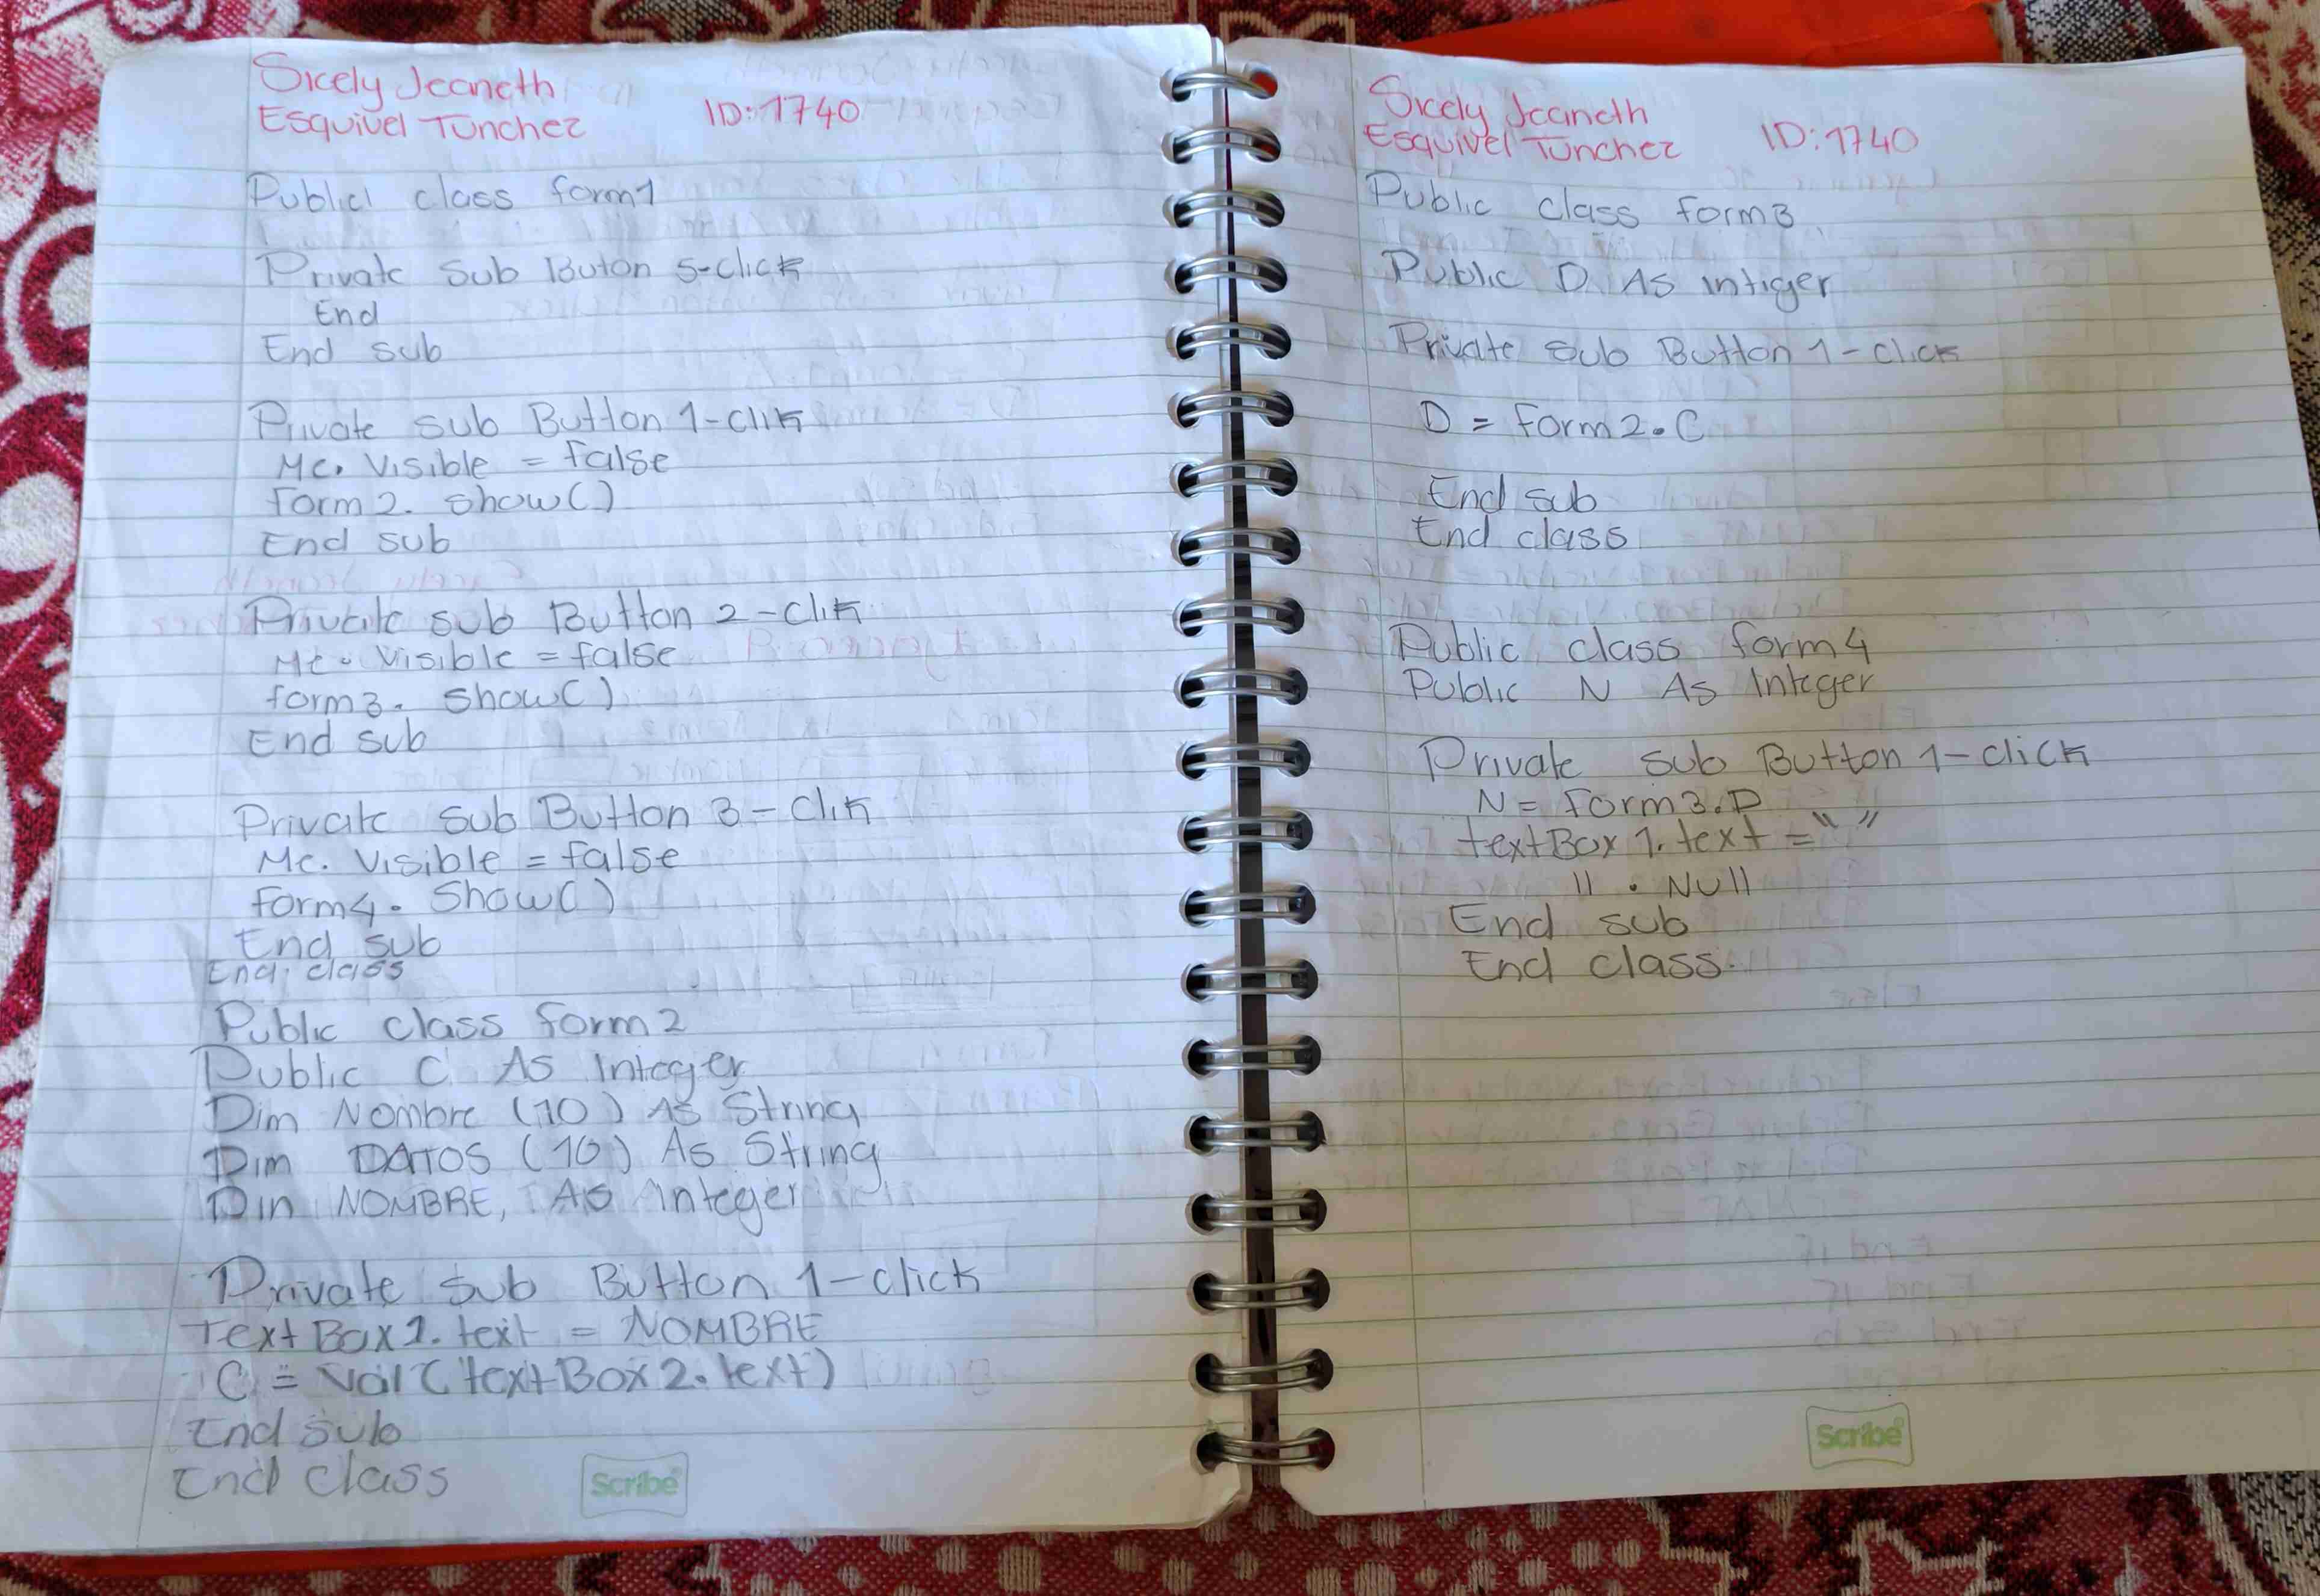 Sicely Jeaneth
Esquivel Túnchez ID:1740
Public class form1
Private Sub Buton 5-click
End
End sub
Private sub Button 1-clik
Me. Visible = false
form2. show()
End sub
Private sub Button 2-clik
Me. Visible = false
form3. show()
End sub
Private sub Button 3-Clik
Me. Visible = false
form4. Show()
End sub
End class
Public class form2
Public C As Integer
Dim Nombre (10) As String
Dim DATOS (10) As String
Din NOMBRE, As integer
Private sub Button 1-click
Text Box1. text = NOMBRE
C = Val (text Box 2. text)
End sub
End class
Scribe
Sicely Jeaneth
Esquivel Túnchez ID:1740
Public class form3
Public D As intiger
Private sub Button 1-click
D = form2.C
End sub
End class
Public class form4
Public N As Integer
Private sub Button 1-click
N = form3.D
textBox 1. text = “ ”
" . Null
End sub
End class.
Scribe